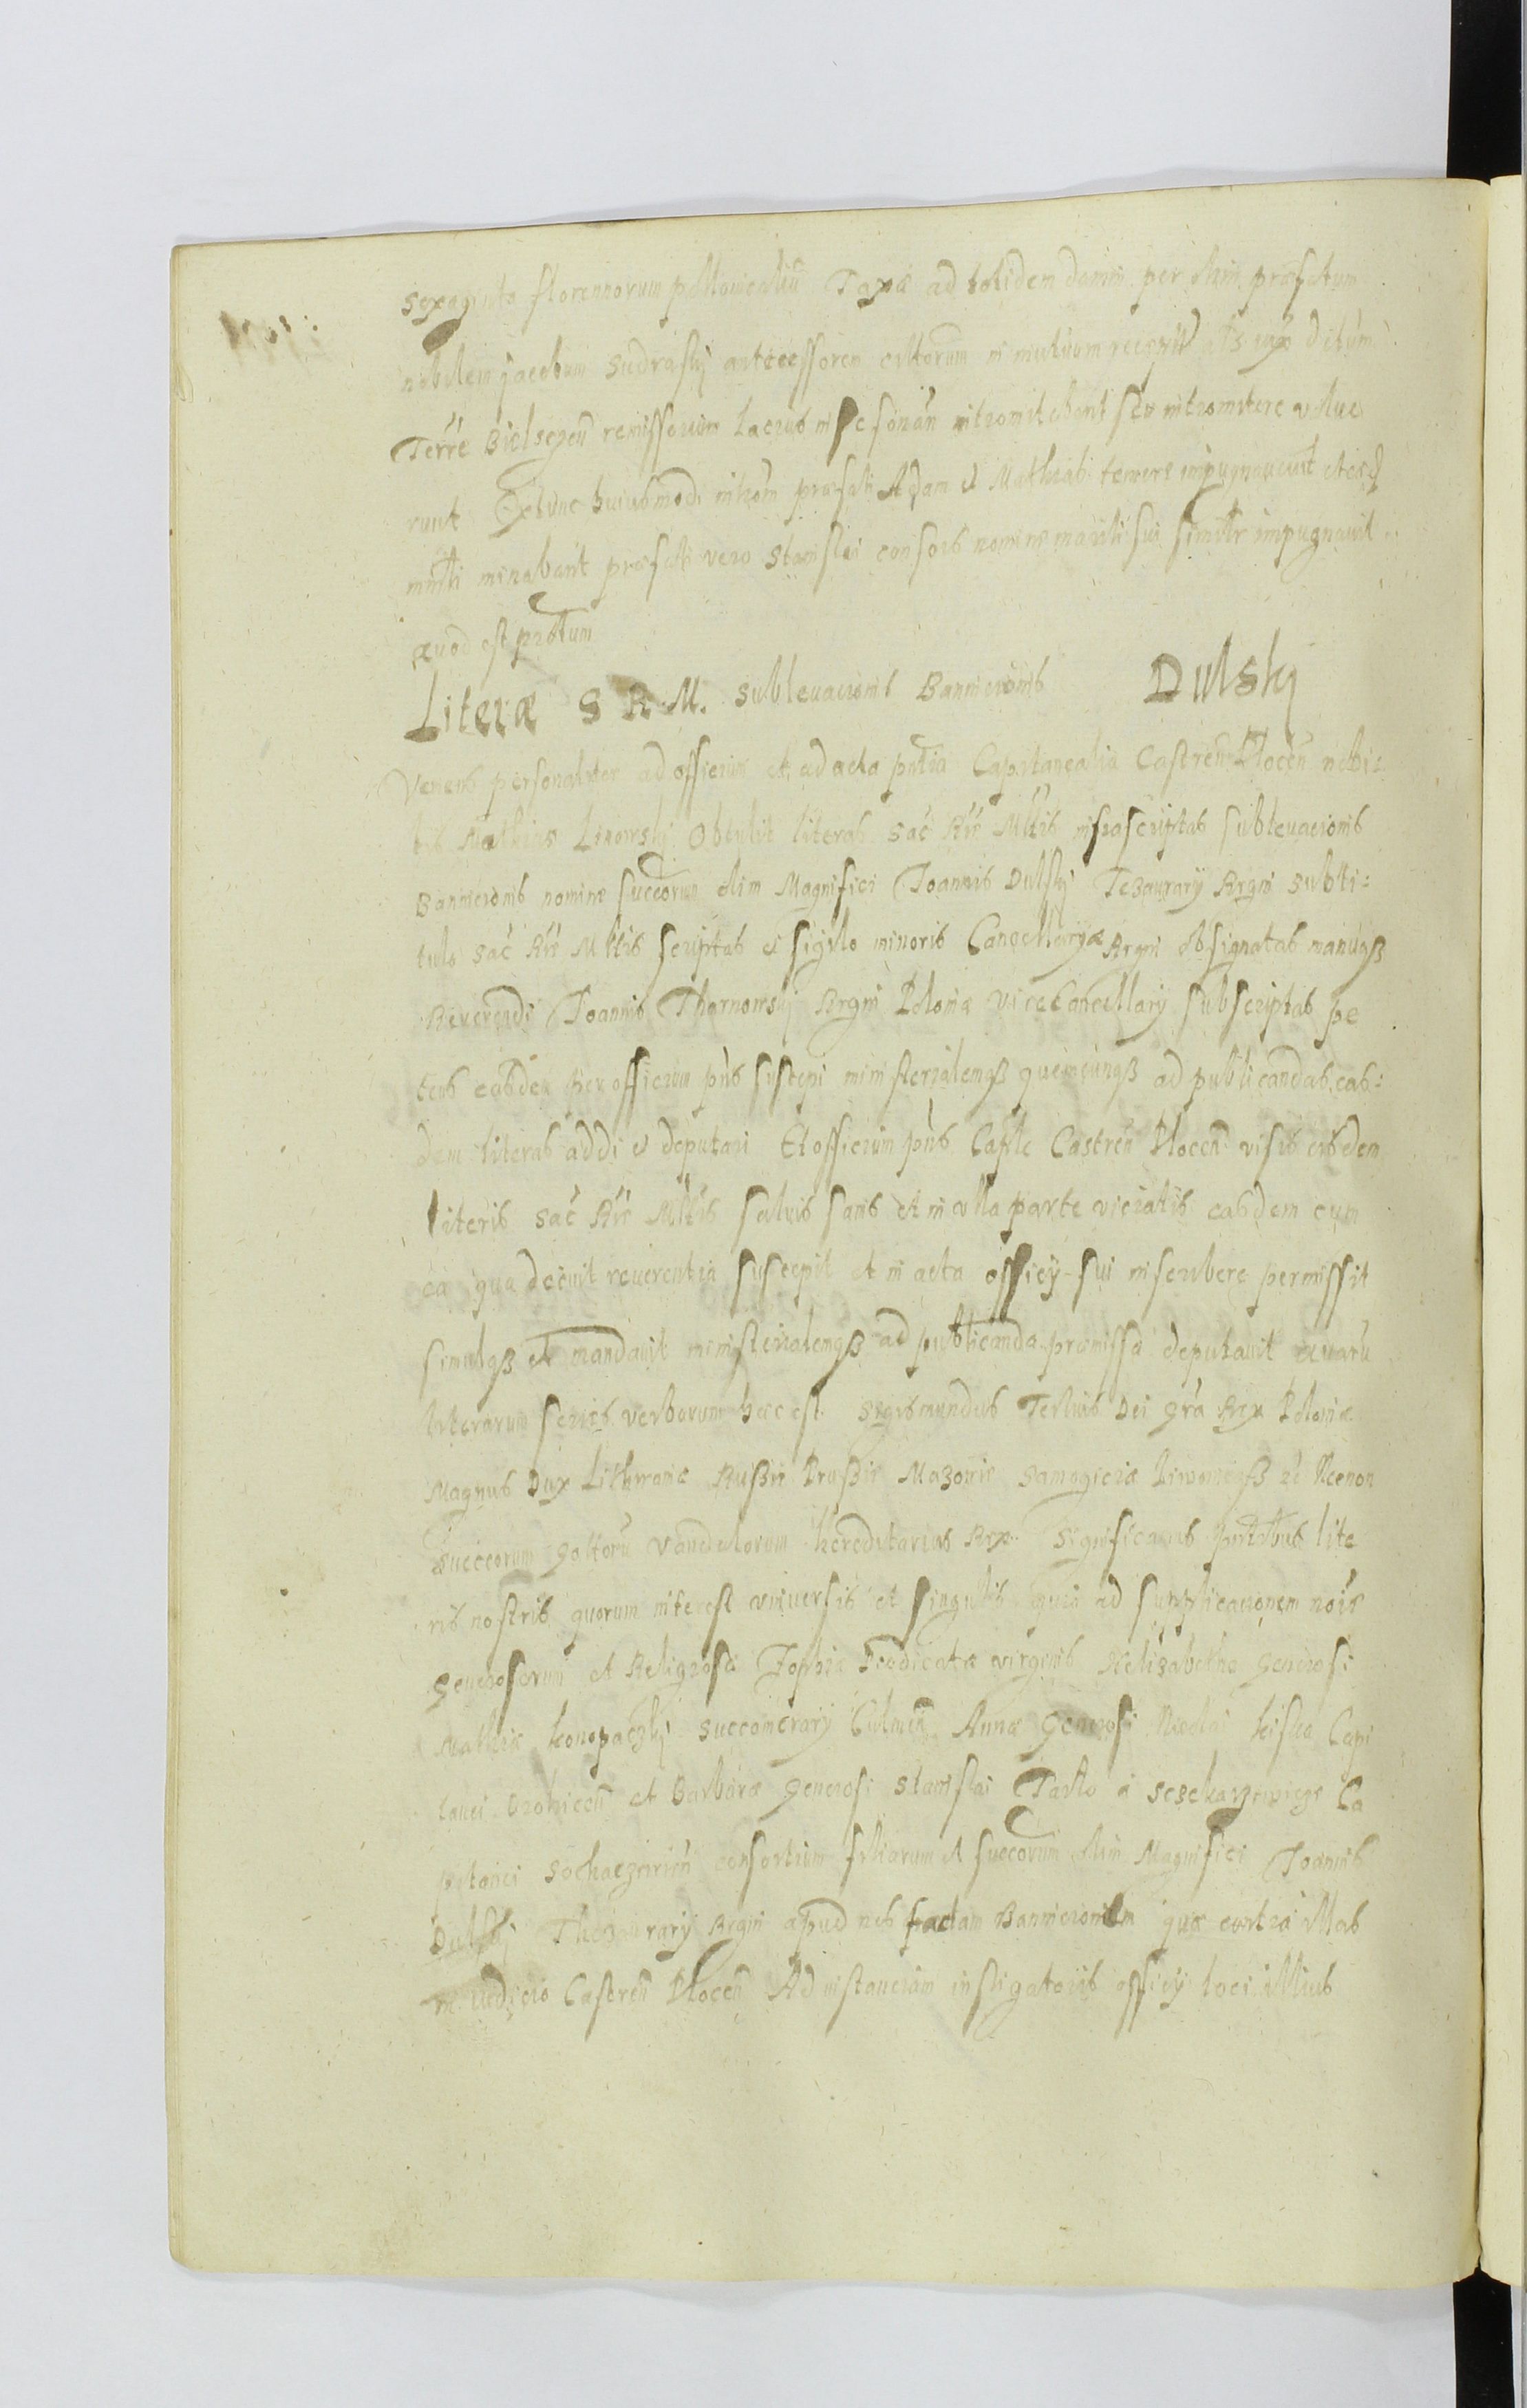 sexaginta florennorum pollonicaliu Taxa ad totidem damni per olim præfatum
nobilem Jacobum Sudrasky antecessorem in mutuum
Terre Bielscen remissorum intromittebant seu intromittere volue
runt Extunc huiusmodi præfati Adam et Mathias temere impugnaverunt
minabant præfati vero Stanislai consors nomine mariti sui similtr impugnauit
quod est
Literæ S R M. Sublevacionis Bannicionis Dulsky
Veniens personaliter ad officium et ad acta pntia Capitanealia Castren Plocen nobi:
lis Mathias Linowsky Obtulit literas Sac Rie Mttis infrascriptas sublevacionis
Bannicionis nomine succorum olim Magnifici Joannis Dulsky Tezaurary Regni sub ti:
tulo Sac Rie Mttis scriptas et sigilo minoris Cancellaryæ Regni obsignatas manuqß
Reverendi Joannis Tharnowsky Regni Poloniæ Vicecancellary subscriptas pe
tens easdem per officium pns suscepi ministerialemqß quemcunqß ad publicandas eas:
dem literas addi et deputari Et officium pns Caple Castren Plocen visis eisdem
literis Sac Rie Mttis salvis sanis et in vlla parte viciatis easdem cum
ea qua decuit reverentia suscepit et in acta officy sui inscribere permissit
simulqß et mandavit ministerialemqß ad publicanda premissa deputavit quaru
literarum series verborum hæc est. Sigismundus Tertius Dei gra Rex Poloniæ
Magnus Dux Lithvaniæ Rußiæ Prußiæ Mazoviæ Samogiciæ Livoniæqß Necnon
Succorum Gottoru Vandalorum hereditarius Rex. Significamus pntibus lite
ris nostris quorum interest vniuersis et singulis quia ad supplicacionem nois
generosarum et Religiosæ Sophiæ Deodicatæ virginis Helizabethæ Generosi
Mathiæ Konopaczky Succamerary Culmen Annæ Generosi Nicolai Kiska Capi
tanei Drohicen et Barbaræ Generosi Stanislai Tarło a Ca
pitanei Sochaczevien consortium filiarum et succorum olim Magnifici Joannis
Dulsky Thezaurary Regni apud nos factam Bannicionem quæ contra illas
in iudicio Castren Plocen Ad instanciam instigatoris officy loci illius